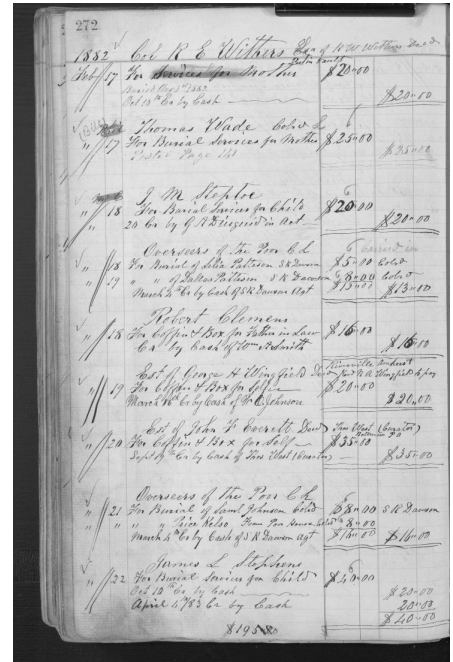 272
1882 Col R E Withers Exr of W W Withers Decd
Feb 17 For Services for Mother $20.00
Buried Aug 1882
Oct 10th Cr by Cash $20.00
Thomas Wade Cold
" 17 For Burial Services for Mother $25.00
Page $25.00
J M Steptoe
" 18 For Burial Services for Child $20.00
20 Cr by in Act $20.00
Overseers of the Poor C.L.
" 18 For Burial of Delia Patteson S R Dawson $5.00 Cold
" 19 " " of Dallas Patteson S R Dawson $8.00 Cold
March 4th Cr by Cash of S R Dawson Agt $13.00 $13.00
Robert Clemens
" 18 For Coffin & Box for Father in Law $16.00
Cr by Cash of Wm H Smith $16.00
Est of George H Wingfield Decd Amherst
" 19 For Coffin & Box for Self $20.00
March 16th Cr by Cash of Johnson $20.00
Est of John F Everett Decd Thos West (Curator)
" 20 For Coffin & Box for Self $35.00
Sept 9th Cr by Cash of Thos West (Curator) $35.00
Overseers of the Poor C.L.
" 21 For Burial of Saml Johnson Cold $8.00 S R Dawson
" " " Price Kelso From Poor House Cold $8.00
March 4th Cr by Cash of S R Dawson Agt $16.00 $16.00
James L Stephens
" 22 For Burial Services for Child $40.00
Oct 10th Cr by Cash $20.00
April 4th 83 Cr by Cash 20.00
$40.00
$195.00